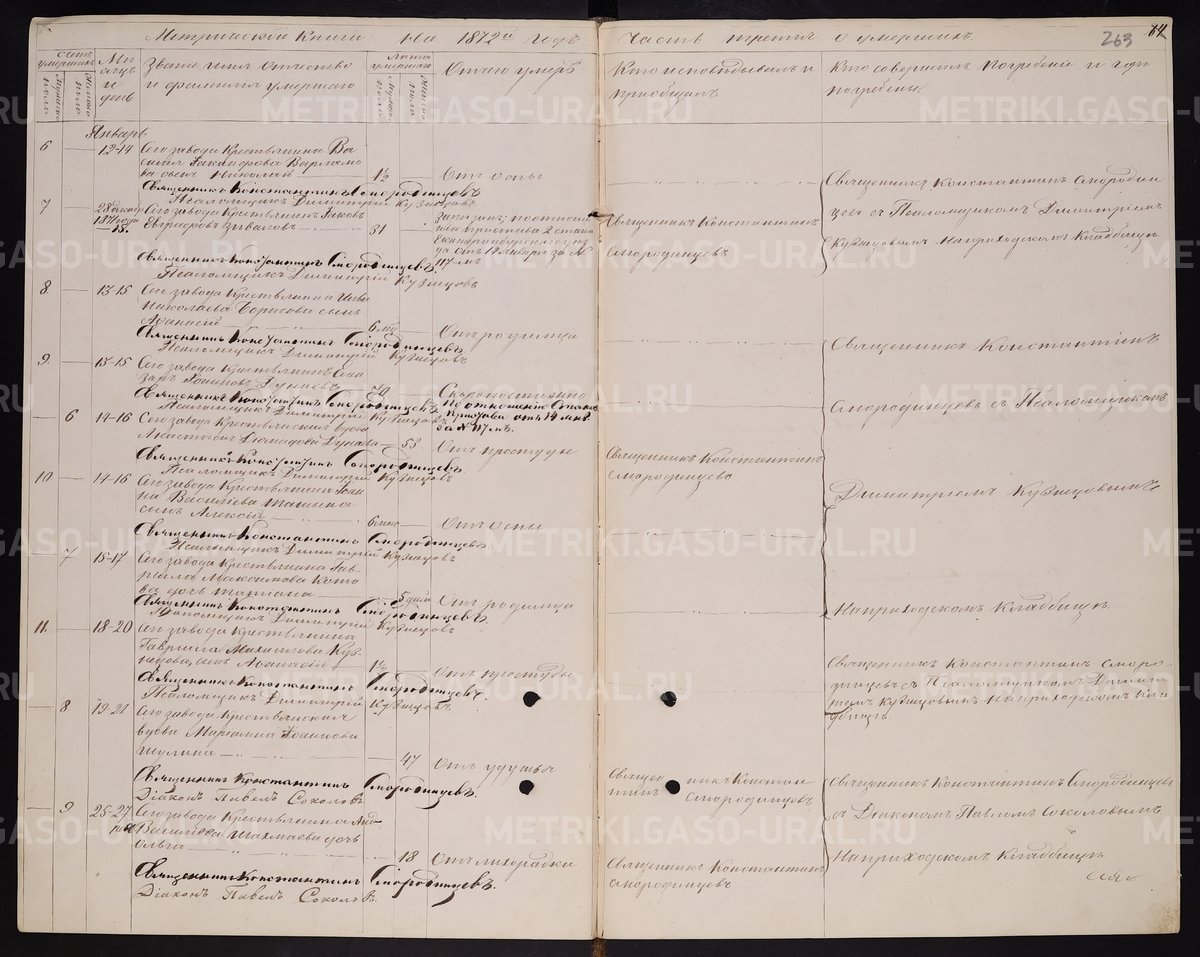 Метрической Книги на 1872й годъ Часть третья о умершихъ.
263
Счетъ умершихъ
Мужеска полъ
Женска полъ
Мѣсяцъ и день
Званіе имя отчество
и фамилія умершаго
Лѣта умершаго
Мужеска полъ
Женска полъ
Отъ чего умеръ
Кто исповѣдывалъ и
пріобщалъ
Кто совершалъ погребеніе и гдѣ
погребены.
Январь
6 — 12-14 Сего завода Крестьянина Ва
силія Варлама
ва сынъ Николай 1½ Отъ оспы
Священникъ Константинъ Смородинцевъ
Псаломщикъ Димитрій Кузнецовъ
7 — 28 декабр
1871 года
—18. Сего завода Крестьянинъ Яковъ
31
Екатеринбургскаго уѣз
да отъ 12 Января за №
117 мъ
Священникъ Константинъ
Смородинцевъ
Священникъ Константинъ Смородин
цевъ съ Псаломщикомъ Димитріемъ
Кузнецовымъ На приходскомъ Кладбищѣ
Священникъ Константинъ Смородинцевъ.
Псаломщикъ Димитрій Кузнецовъ
8. — 13-15 Сего завода Крестьянина Ива
Николаева Борисова сынъ
Афанасій 6 мц Отъ родимца
Священникъ Константинъ Смородинцевъ
Псаломщикъ Димитрій Кузнецовъ
9. — 13-15 Сего завода Крестьянинъ Ела
Дунаевъ 70 Скоропостижно
По отношенію Станов.
Пристава отъ 14 Янв.
за № 117 мъ.
Священникъ Константинъ Смородинцевъ
Псаломщикъ Димитрій Кузнецовъ
— 6 14-16 Сего завода Крестьянская вдова
Анастасія Дунаева — 53 Отъ простуды
Священникъ Константинъ
Смородинцевъ
Священникъ Константинъ
Смородинцевъ съ Псаломщикомъ
Димитріемъ Кузнецовымъ
На приходскомъ Кладбищѣ
Священникъ Константинъ Смородинцевъ.
Псаломщикъ Димитрій Кузнецовъ
10 — 14-16 Сего завода Крестьянина
на Василіева
сынъ Алексій 6 Отъ оспы
Священникъ Константинъ Смородинцевъ
Псаломщикъ Димитрій Кузнецовъ
7 15-17 Сего завода Крестьянина Гав
ріила Максимова Кото
ва дочь Татіана — 5 дней Отъ родимца
Священникъ Константинъ Смородинцевъ.
Псаломщикъ Димитрій Кузнецовъ
11. — 18-20 Сего завода Крестьянина
Гавріила Михаилова Куз
нецова, сынъ Афанасій 1½ Отъ простуды
Священникъ Константинъ Смородинцевъ.
Псаломщикъ Димитрій Кузнецовъ
Священникъ Константинъ Сморо-
динцевъ съ Псаломщикомъ Димит
ріемъ Кузнецовымъ На приходскомъ Кла
дбищѣ.
— 8. 19-21 Сего завода Крестьянская
вдова Маріамна Іоаннова
Шулина — 47 Отъ удушья
Священникъ Константинъ
Смородинцевъ
Священникъ Константинъ Смородинцевъ.
Діаконъ Павелъ Соколовъ
— 9 25-27 Сего завода Крестьянина
Василіева Шахмаева дочь
Ольга — 18 Отъ лихорадки
Священникъ Константинъ
Смородинцевъ
Священникъ Константинъ Смородинцевъ
съ Діакономъ Павломъ Соколовымъ
На приходскомъ Кладбищѣ
Священникъ Константинъ Смородинцевъ.
Діаконъ Павелъ Соколовъ.
METRIKI.GASO-URAL.RU